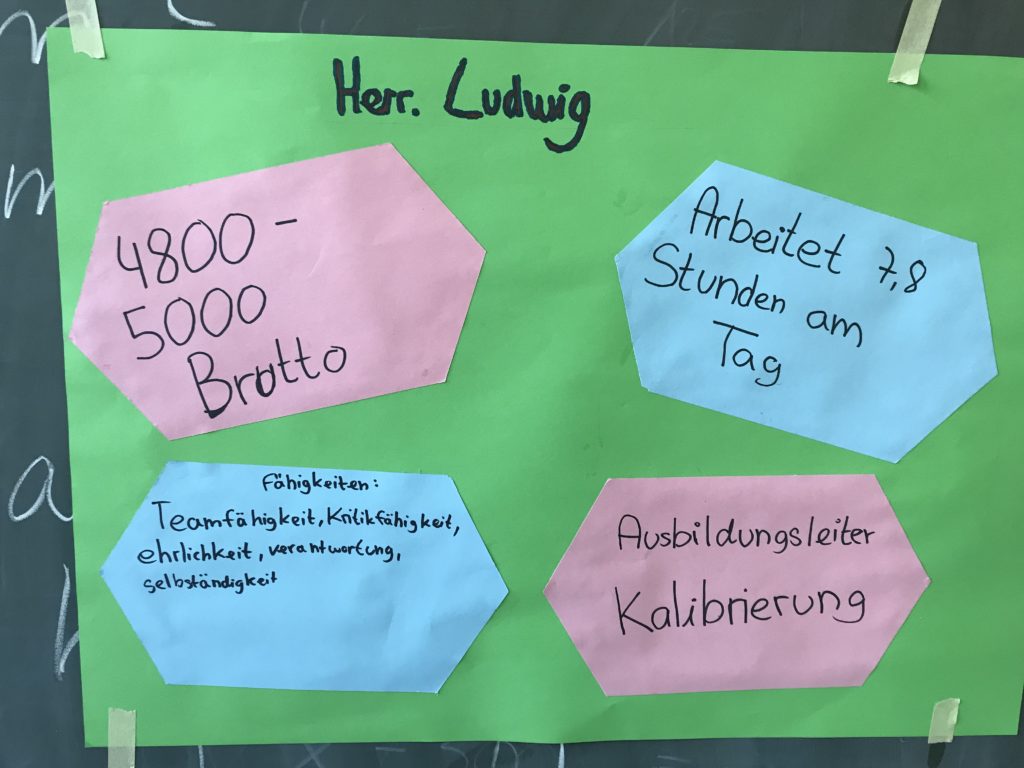 Herr. Ludwig
4800 -
5000
Brutto
Arbeitet 7,8
Stunden am
Tag
Fähigkeiten:
Teamfähigkeit, Kritikfähigkeit,
ehrlichkeit, verantwortung,
selbständigkeit
Ausbildungsleiter
Kalibrierung